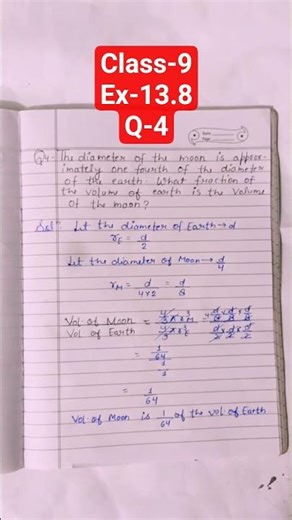 Class-9
Ex-13.8
Q-4
Q4- The diameter of the moon is approx-
imately one fourth of the diameter
of the earth. What fraction of
the volume of earth is the volume
of the moon?
Solⁿ Let the diameter of Earth → d
r_E = d/2
Let the diameter of Moon → d/4
r_M = d/4×2 = d/8
Vol of Moon / Vol of Earth = 4/3 π r³_M / 4/3 π r³_E = d/8 × d/8 × d/8 / d/2 × d/2 × d/2
= 1/64 / 1/1
= 1/64
Vol of Moon is 1/64 of the vol of Earth